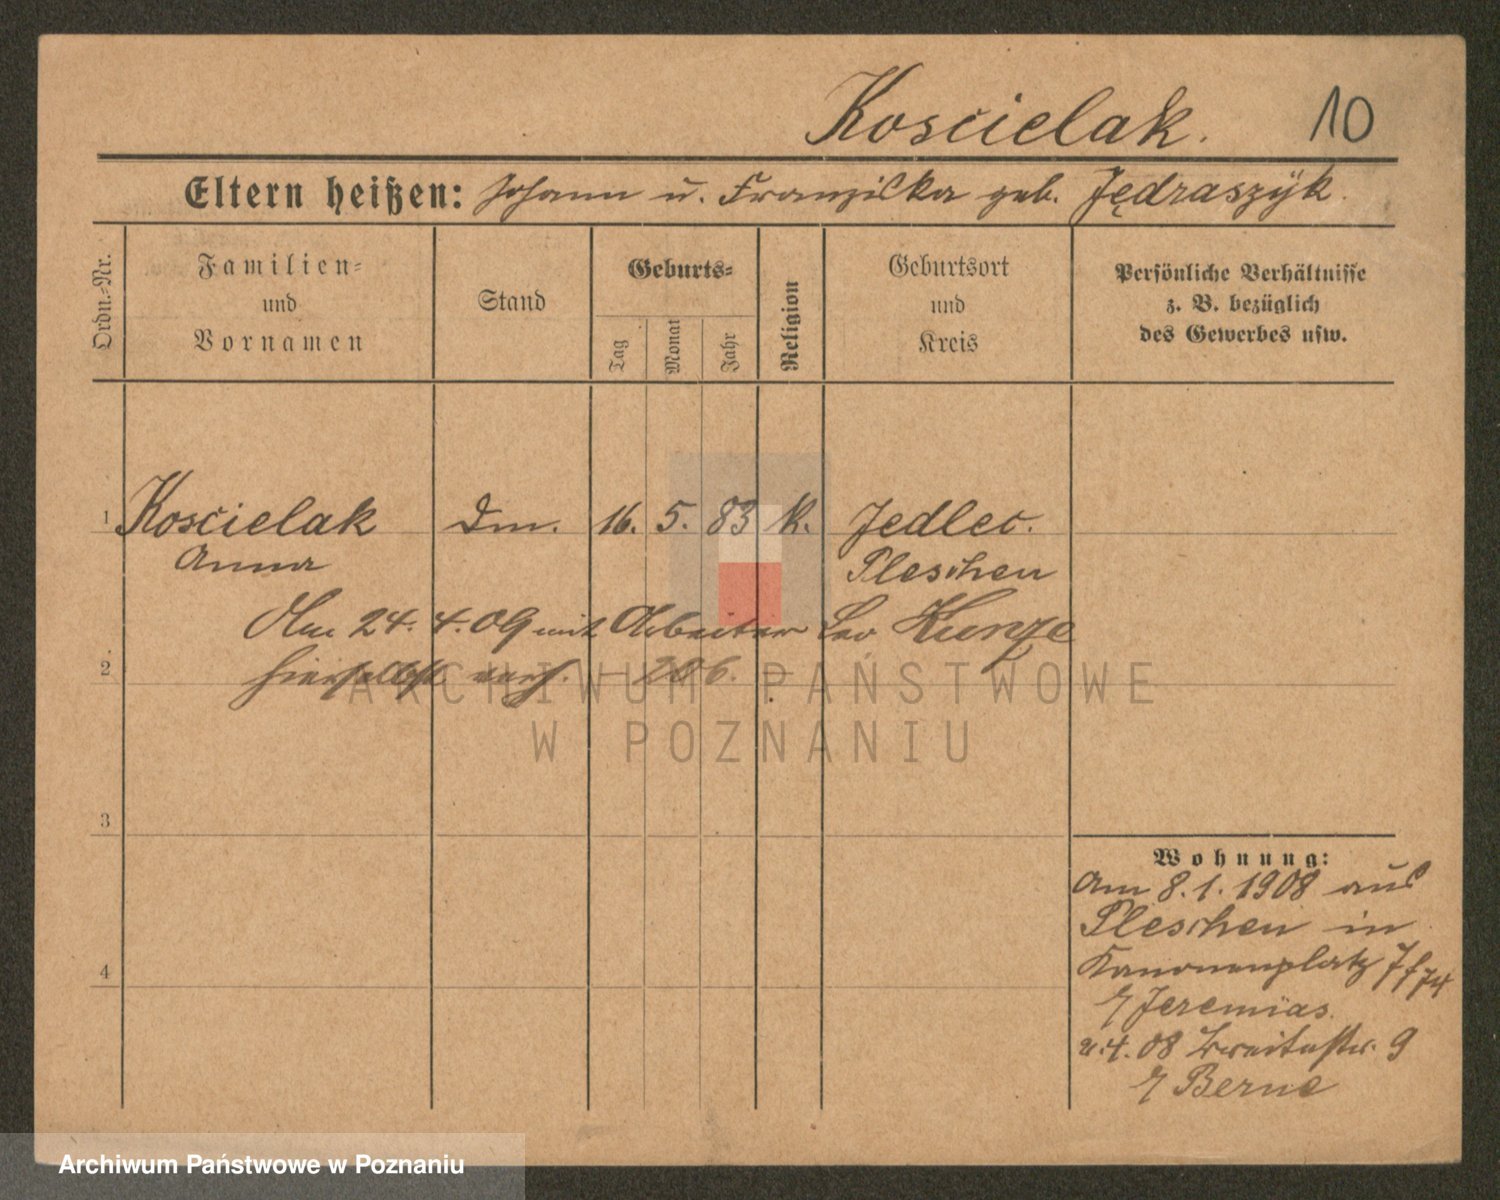 Kościelak. 10
Eltern heißen: Johann u. Franziska geb. Jędraszyk.
Ordn.-Nr.
Familien-
und
Vornamen
Stand
Geburts-
Tag
Monat
Jahr
Religion
Geburtsort
und
Kreis
Persönliche Verhältnisse
z. B. bezüglich
des Gewerbes usw.
1 Kościelak Dm. 16. 5. 83 k. Jedlec.
Anna Pleschen
Am 24. 4. 09 mit Arbeiter Leo Kunze
2 hierselbst verh. – 206. –
3
4
Wohnung:
Am 8. 1. 1908 aus
Pleschen in
Kanonenplatz 7
Jeremias.
4. 08 Breitestr. 9
Berne
ARCHIWUM PAŃSTWOWE
W POZNANIU
Archiwum Państwowe w Poznaniu